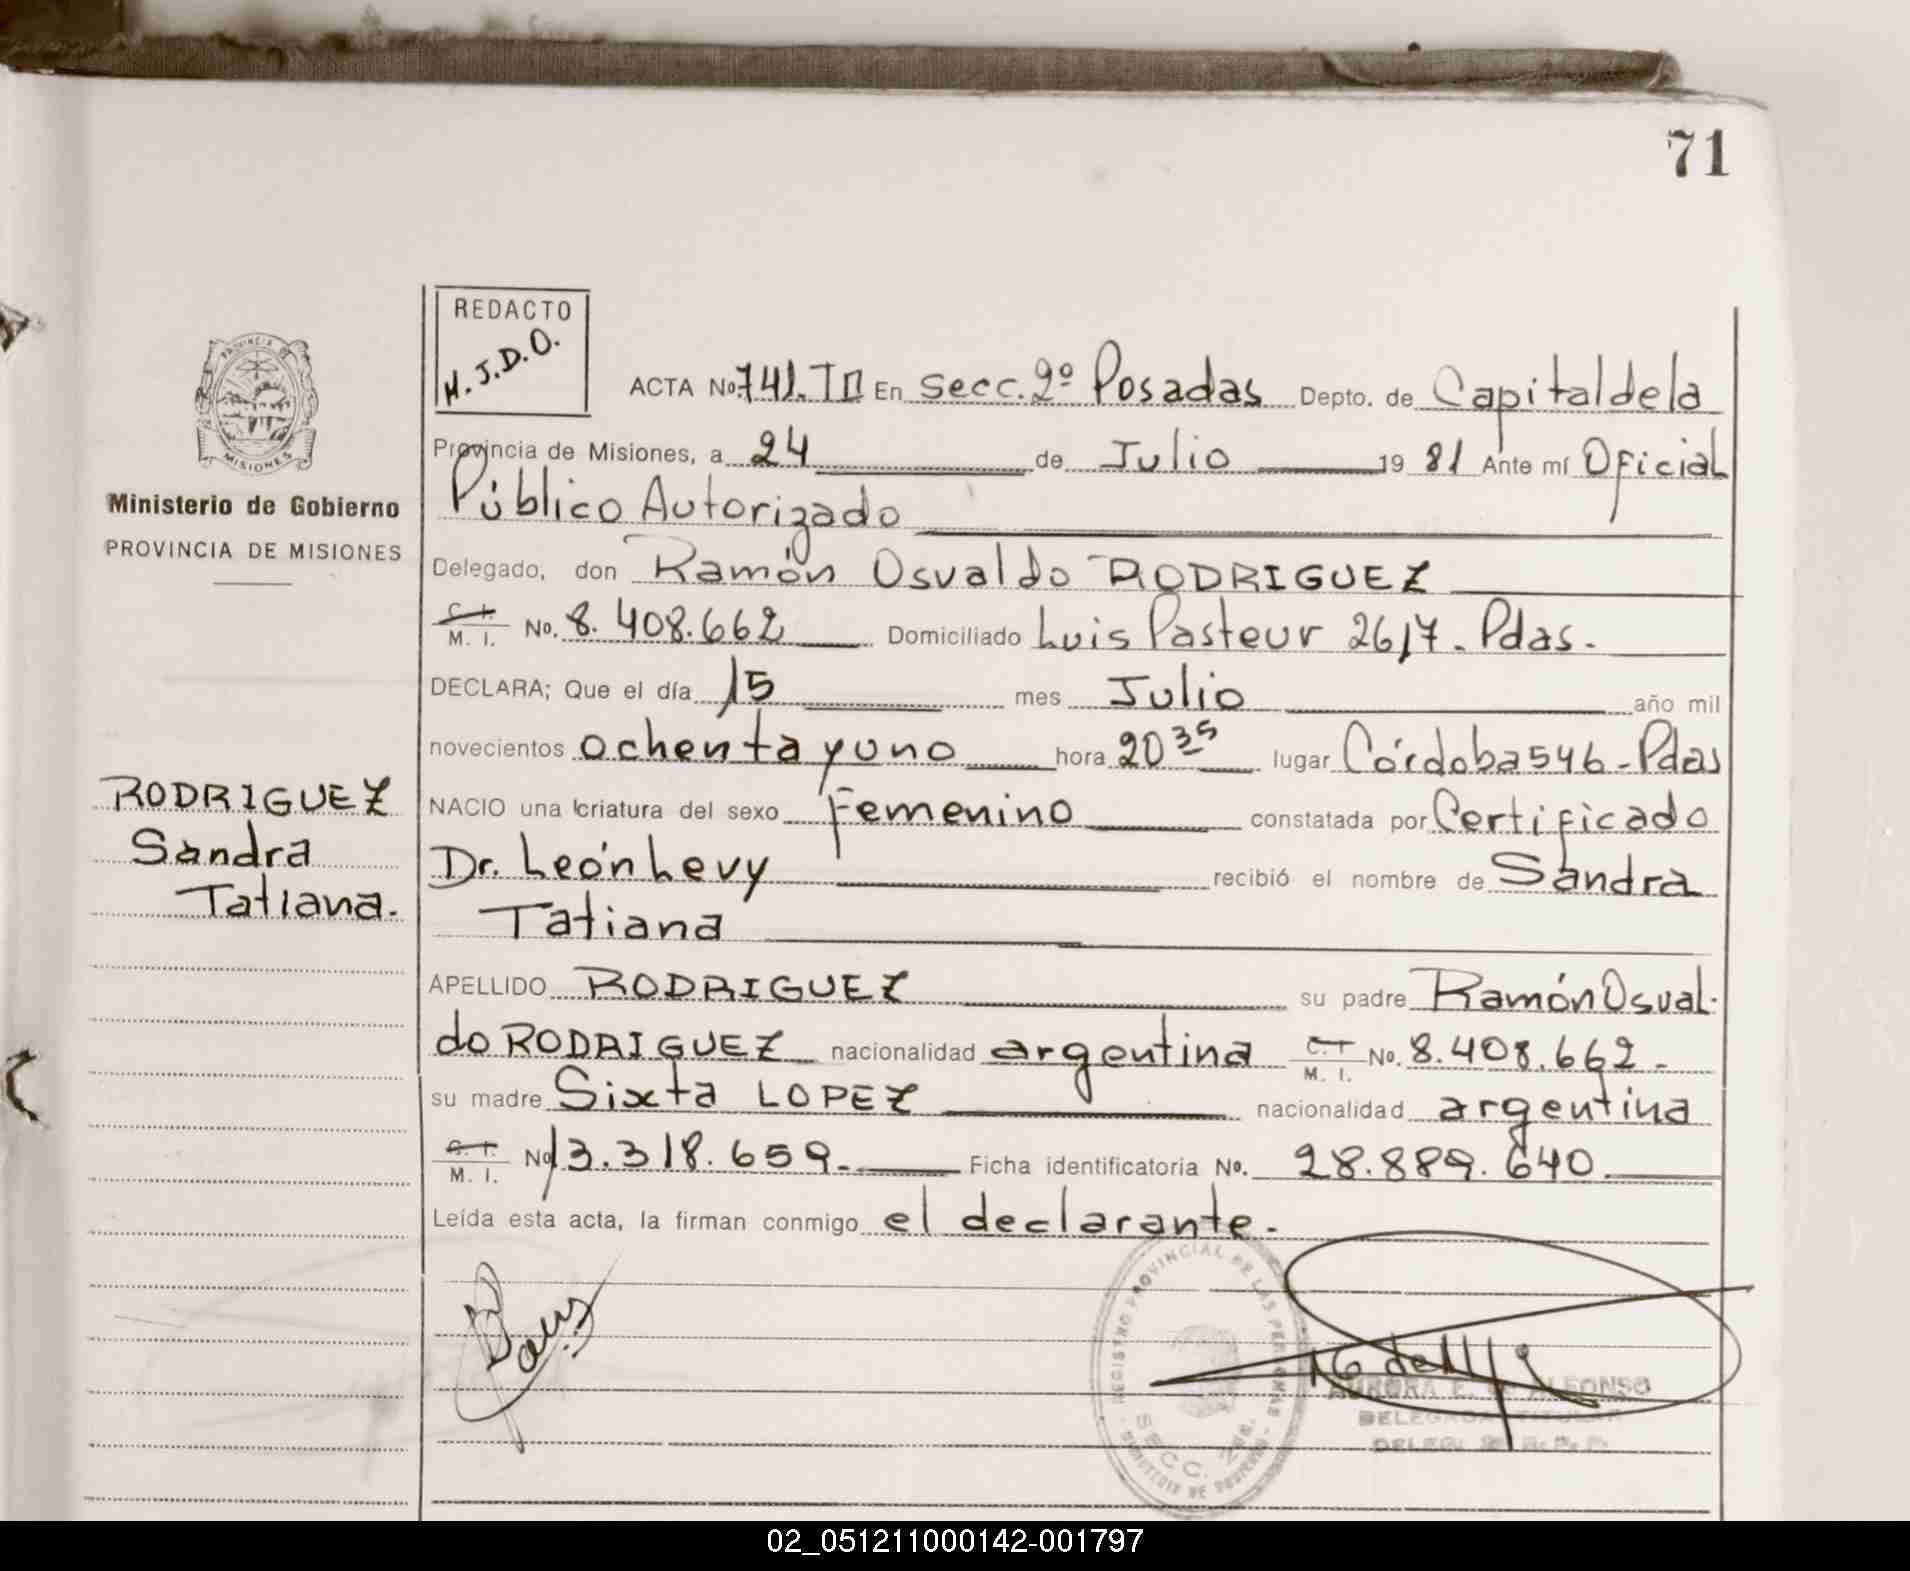 71
REDACTO
H.J.D.O.
ACTA No. 741. TII En secc. 2º Posadas Depto. de Capital de la
Provincia de Misiones, a 24 de Julio 19 81 Ante mí Oficial
Público Autorizado
Delegado, don Ramón Osvaldo RODRIGUEZ
C. I.
M. I. No. 8.408.662 Domiciliado Luis Pasteur 2617. Pdas.
DECLARA; Que el día 15 mes Julio año mil
novecientos ochenta y uno hora 20 35 lugar Córdoba 546 - Pdas
NACIO una criatura del sexo Femenino constatada por Certificado
Dr. León Levy recibió el nombre de Sandra
Tatiana
APELLIDO RODRIGUEZ su padre Ramón Osval-
do RODRIGUEZ nacionalidad argentina C. I. M. I. No. 8.408.662.-
su madre Sixta LOPEZ nacionalidad argentina
C. I.
M. I. No 13.318.659.- Ficha identificatoria No. 28.889.640
Leída esta acta, la firman conmigo el declarante.-
PROVINCIA DE
MISIONES
Ministerio de Gobierno
PROVINCIA DE MISIONES
RODRIGUEZ
Sandra
Tatiana.
REGISTRO PROVINCIAL DE LAS PERSONAS
SECC.
AURORA E. de ALFONSO
DELEGADA TITULAR
02_051211000142-001797